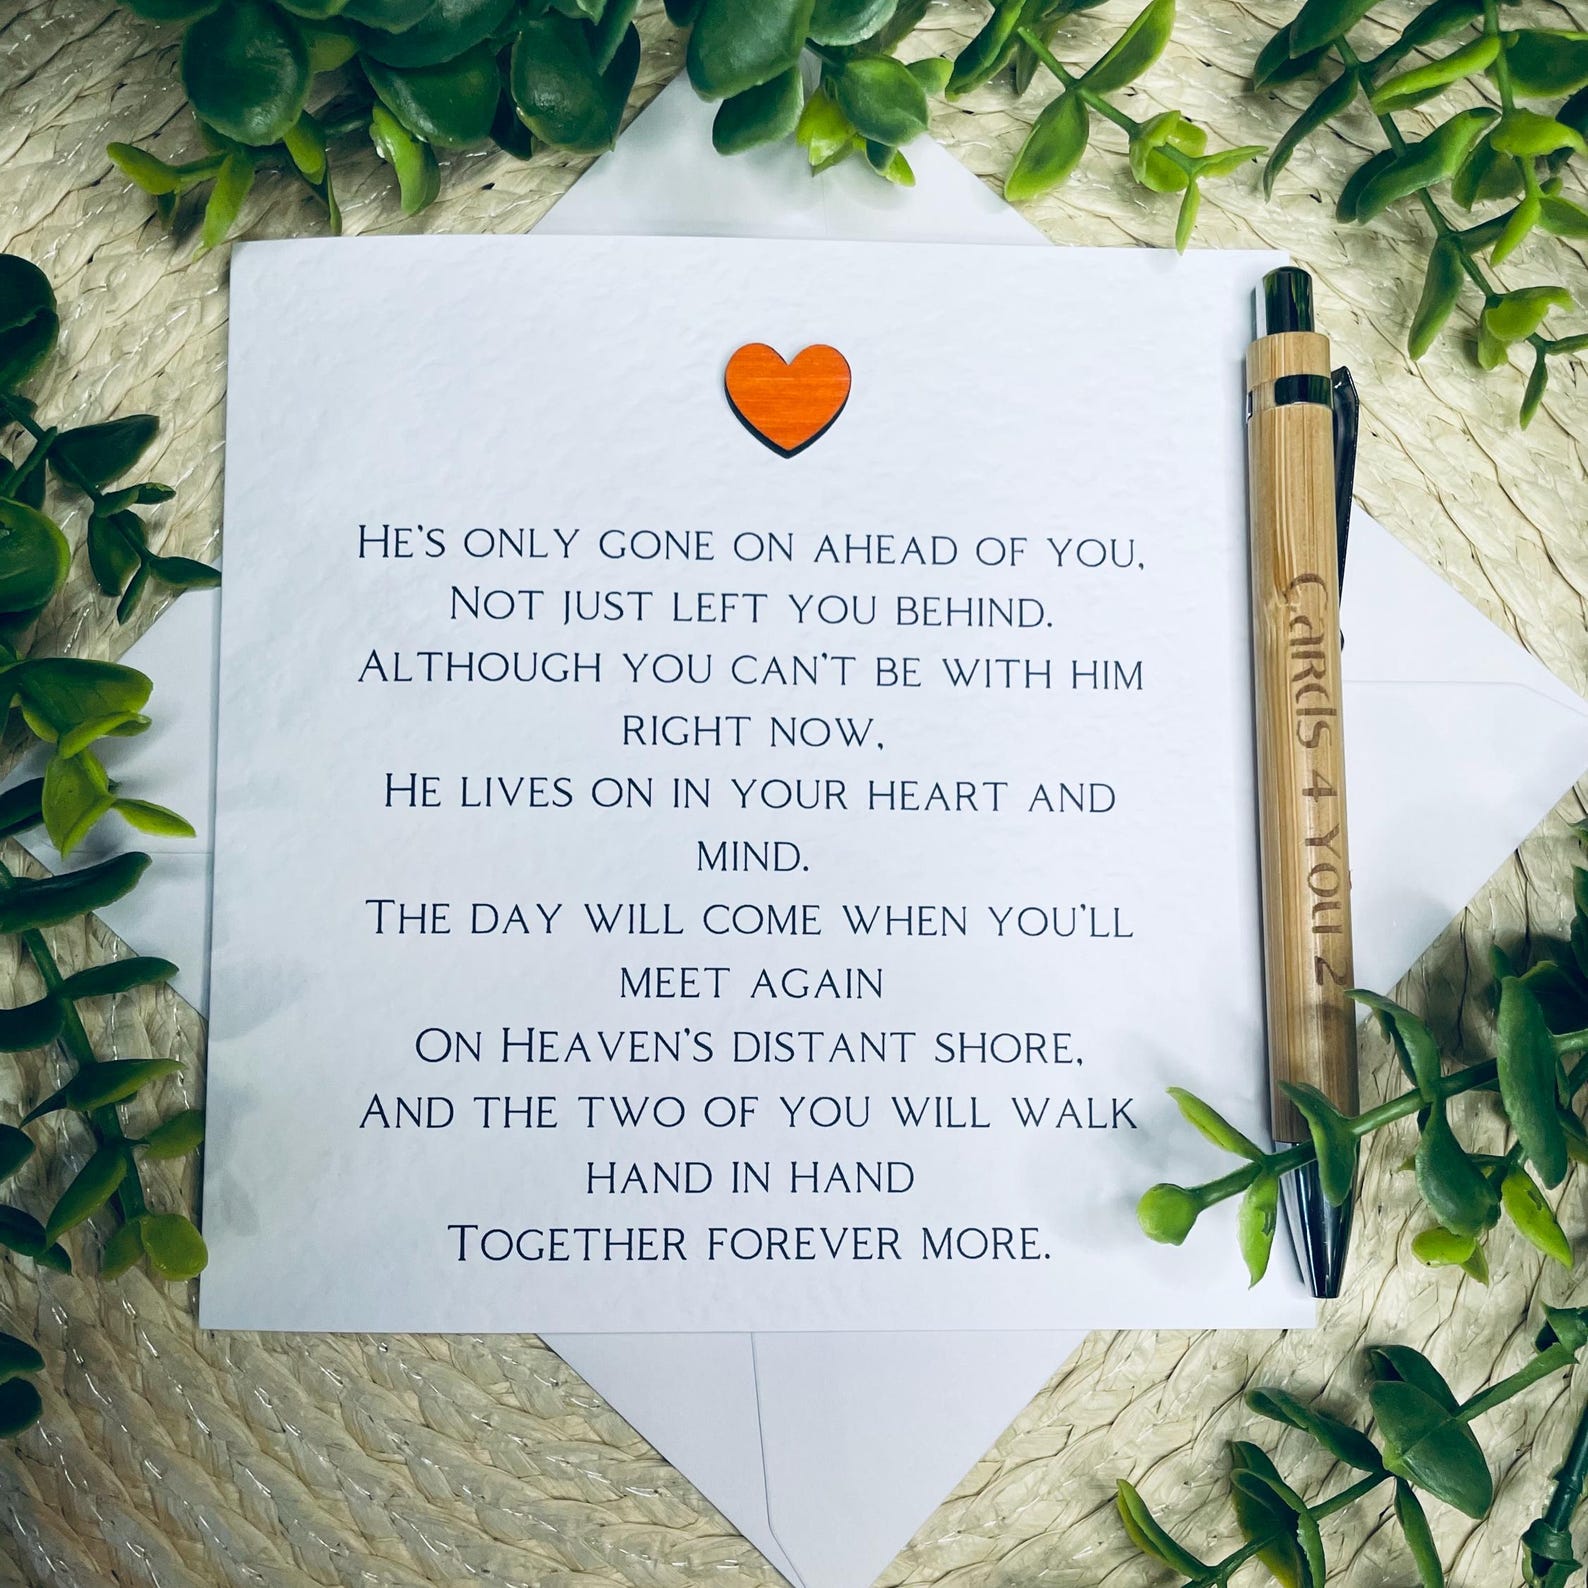 He's only gone on ahead of you,
Not just left you behind.
Although you can't be with him
right now,
He lives on in your heart and
mind.
The day will come when you'll
meet again
On Heaven's distant shore,
And the two of you will walk
hand in hand
Together forever more.
CARDS 4 YOU 2